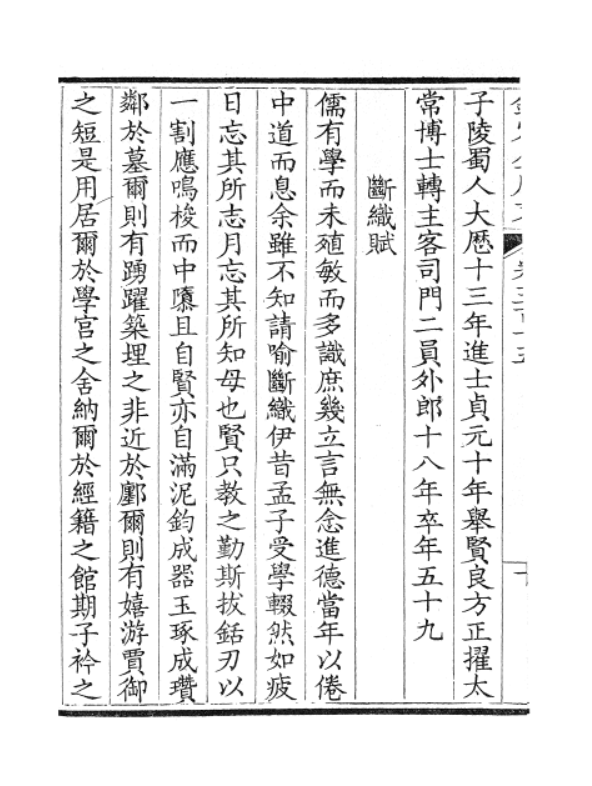 子陵蜀人大厯十三年進士貞元十年舉賢良方正擢太
常博士轉主客司門二員外郎十八年卒年五十九
斷織賦
儒有學而未殖敏而多識庶幾立言無念進德當年以倦
中道而息余雖不知請喻斷織伊昔孟子受學輟然如疲
日忘其所志月忘其所知母也賢只教之勤斯拔銛刃以
一割應鳴梭而中隳且自賢亦自滿泥鈞成器玉琢成瓚
鄰於墓爾則有踴躍築埋之非近於鄽爾則有嬉游賈御
之短是用居爾於學宮之舍納爾於經籍之館期子衿之